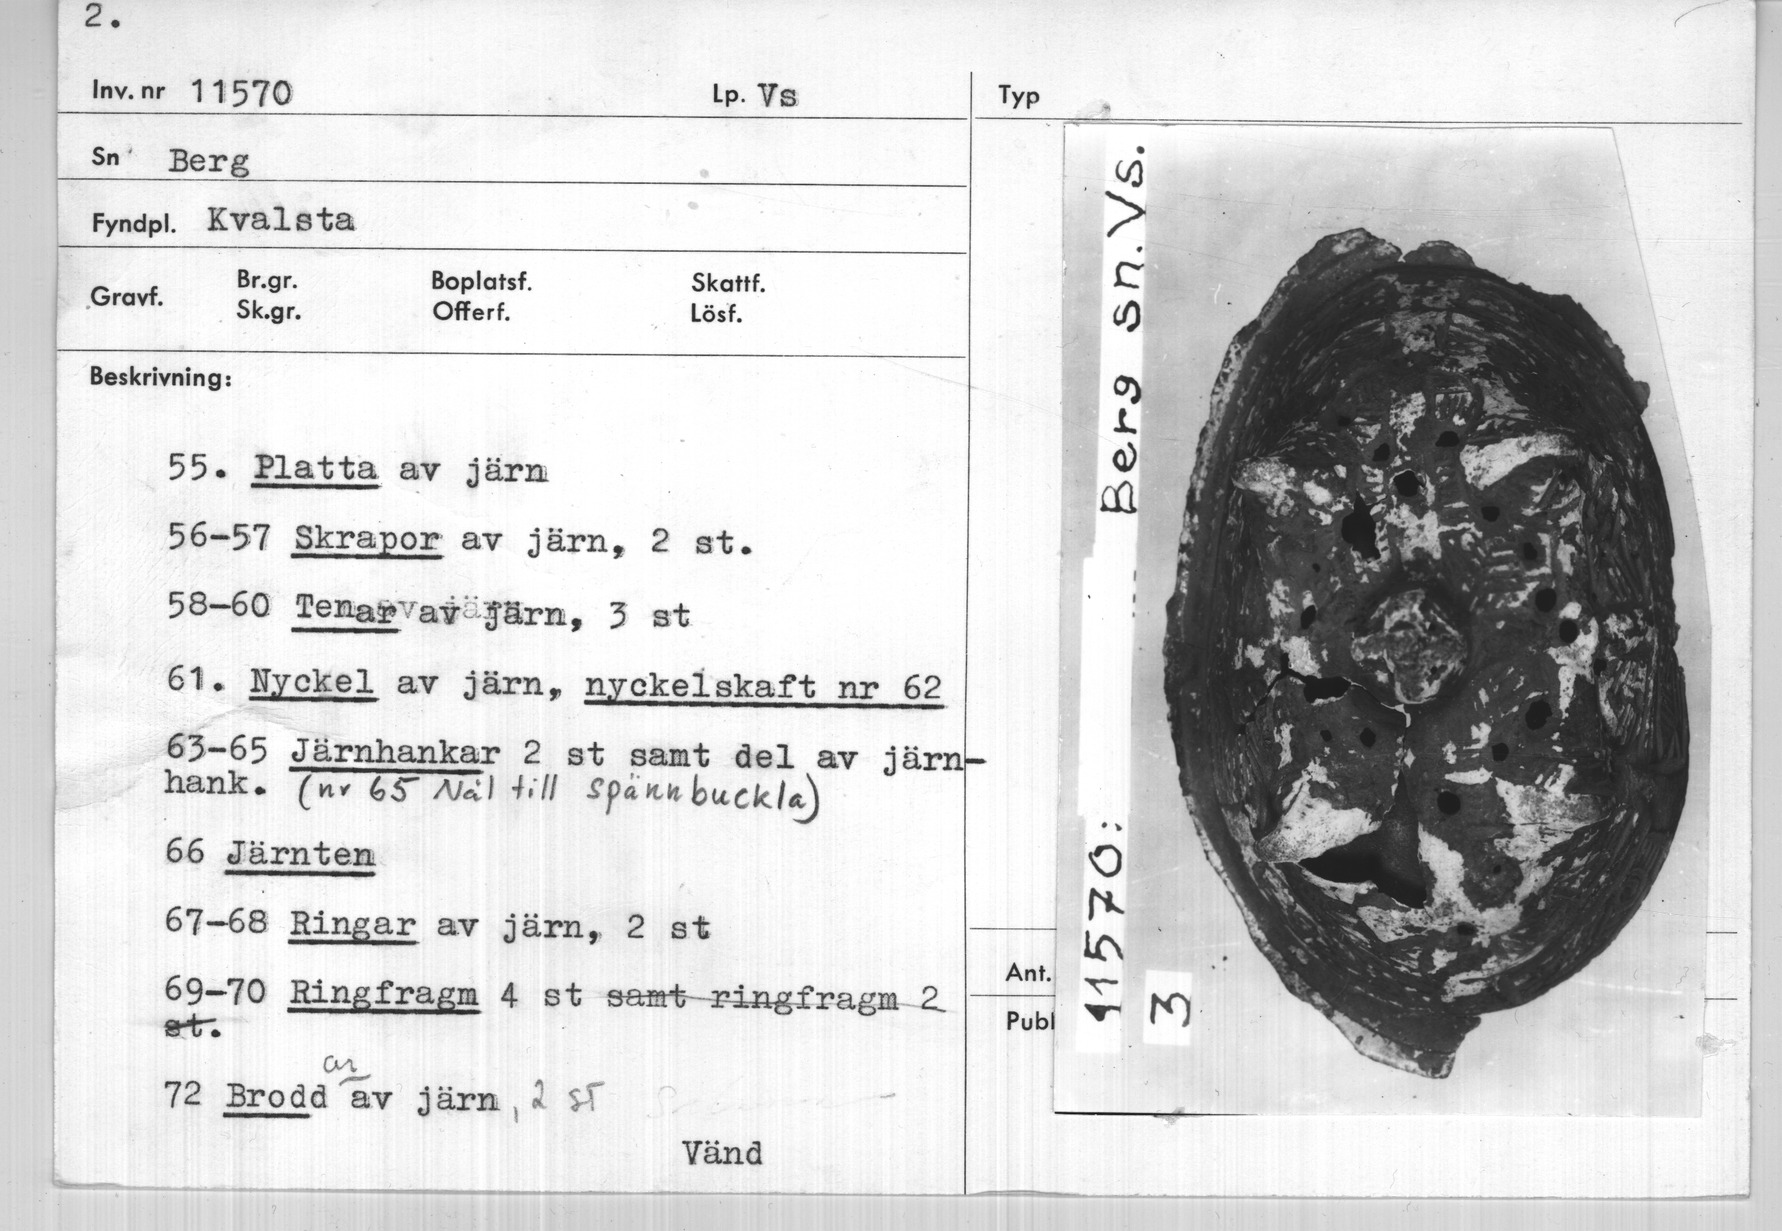 2.
Inv. nr 11570 Lp. Vs
Sn Berg
Fyndpl. Kvalsta
Gravf. Br.gr. Boplatsf. Skattf.
Sk.gr. Offerf. Lösf.
Beskrivning:
55. Platta av järn
56-57 Skrapor av järn, 2 st.
58-60 Tenar av järn, 3 st
61. Nyckel av järn, nyckelskaft nr 62
63-65 Järnhankar 2 st samt del av järn-
hank. (nr 65 Nål till spännbuckla)
66 Järnten
67-68 Ringar av järn, 2 st
69-70 Ringfragm 4 st samt ringfragm 2
st.
ar
72 Brodd av järn, 2 st
Vänd
Typ
Ant.
Publ
11570: Berg sn. Vs.
3